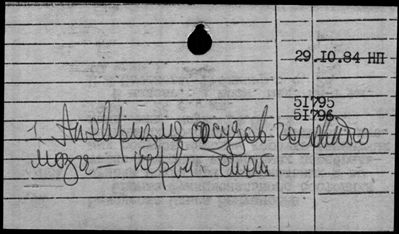 29.10.84 НП
51795
51796
1. Аневризма сосудов головного
мозга – нервн.